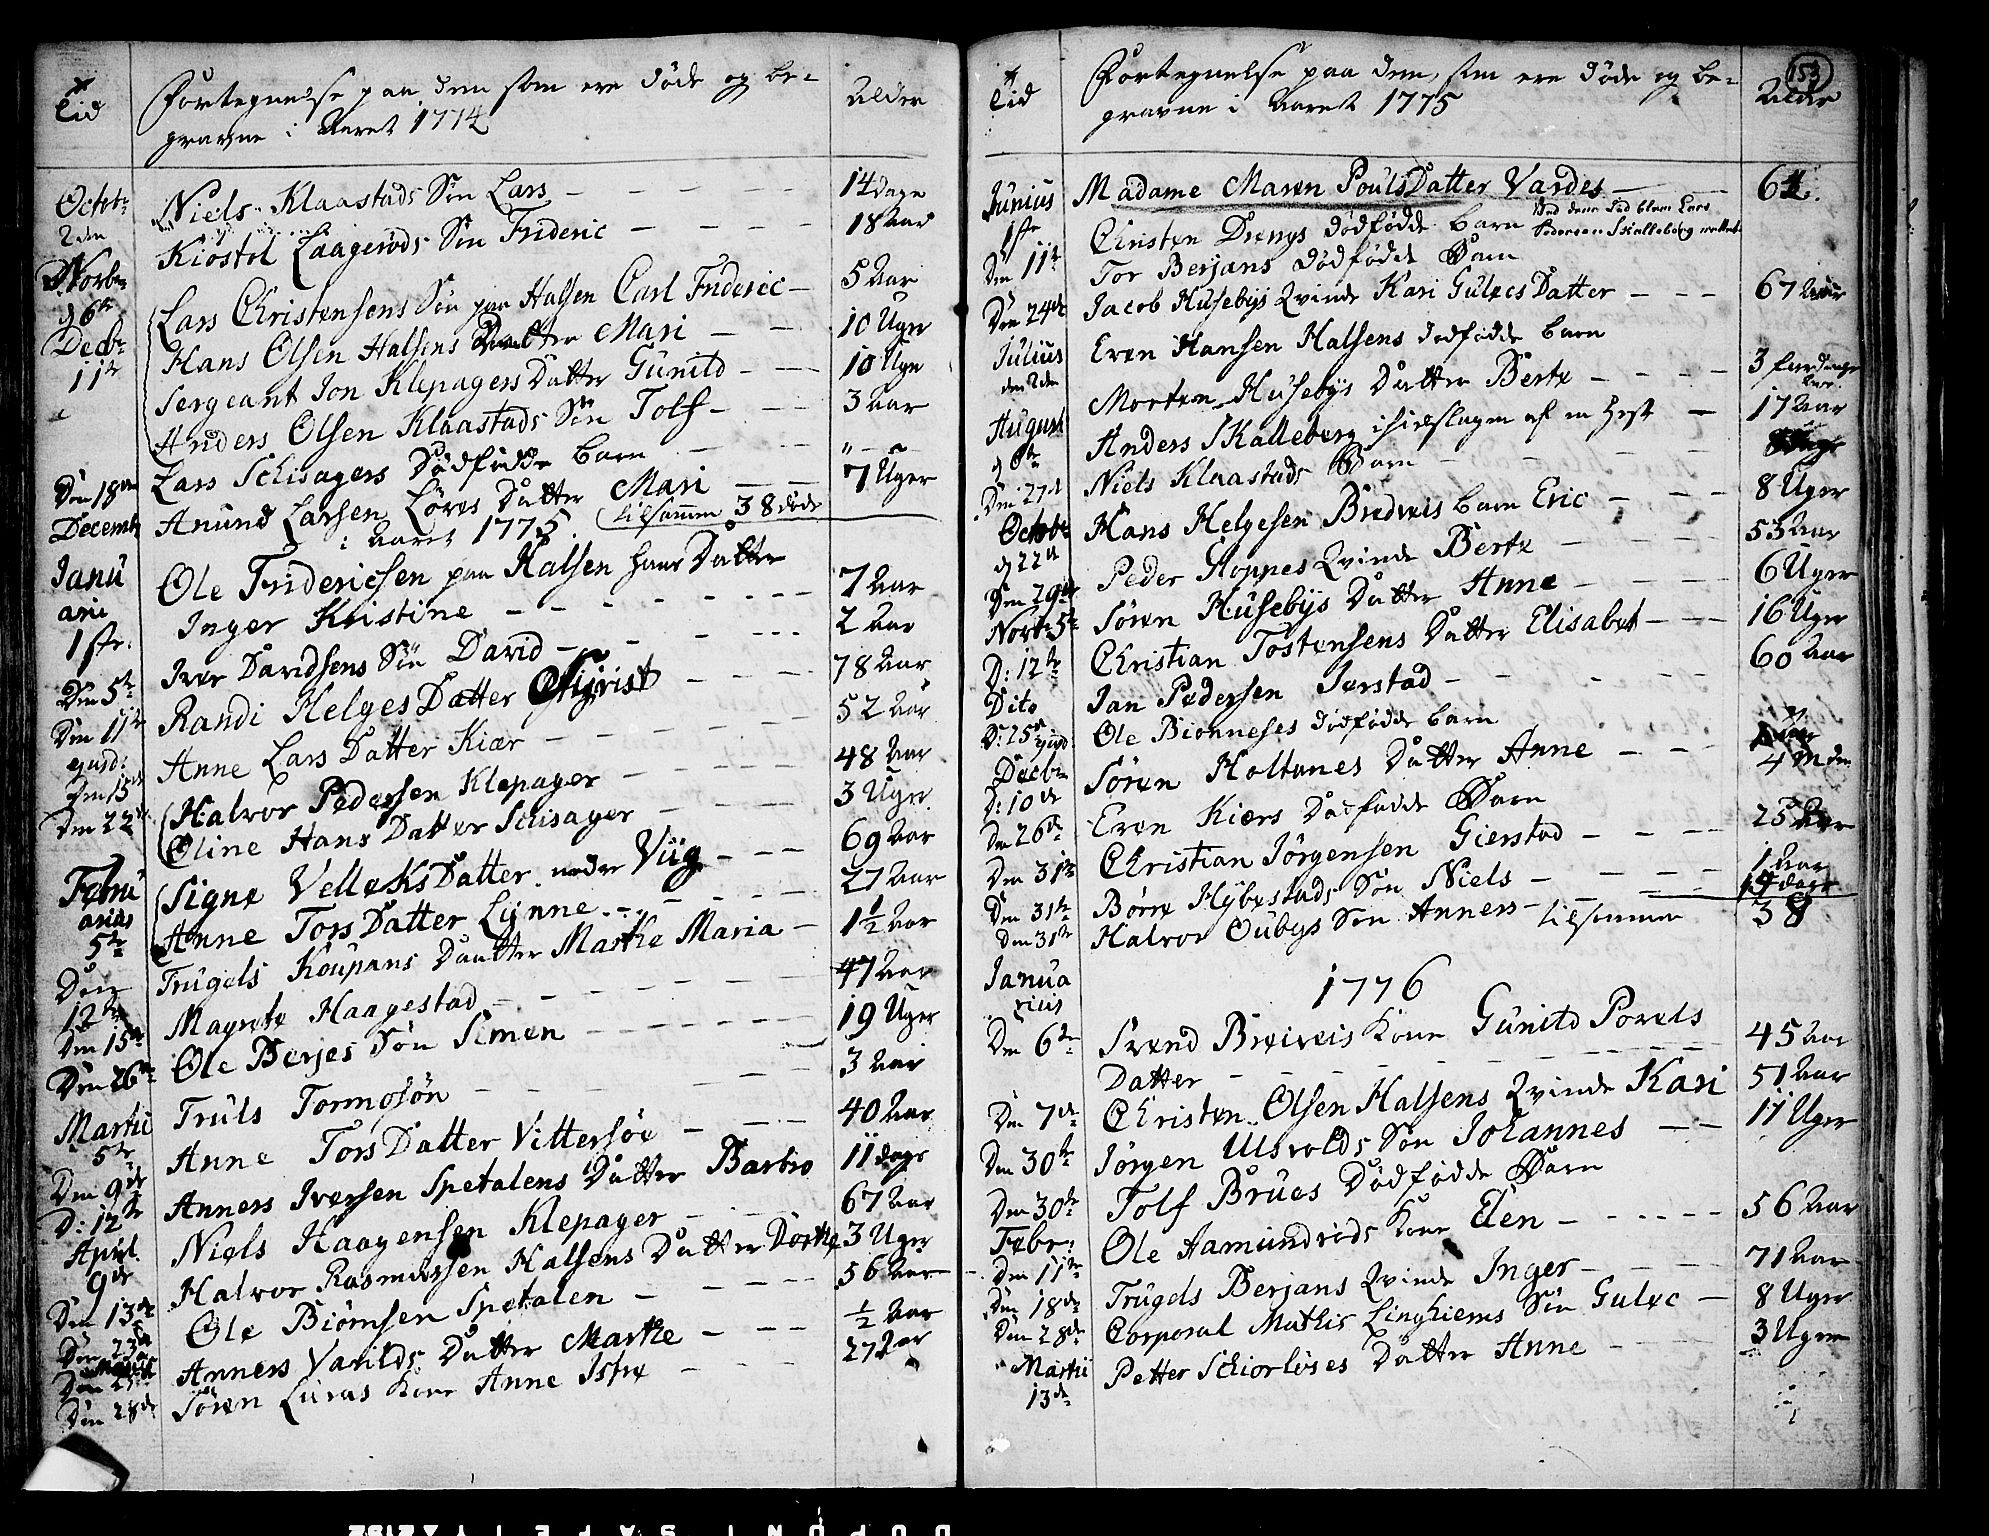 Tid
Fortegnelse paa dem som ere døde og be-
gravne i Aaret 1774
Alder
Octobr 2den Niels Klaastads Søn Lars - 14 dage
Kiøstol Laagerøds Søn Frideric - 18 Aar
Novbr d 6te Lars Christensens Søn paa Halsen Carl Frideric - 5 Aar
Decbr 11te Hans Olsen Halsens Datter Mari - 10 Uger
Sergeant Jon Klepagers Datter Gunild - 10 Uger
Anders Olsen Klaastads Søn Tolf - 3 Aar
Lars Schisagers Dødfødde Barn
Den 18de Decemb Anund Larsen Løves Datter Mari - 7 Uger
i Aaret 1775. tilsammen 38 døde
Januarii 1ste. Ole Fridericsen paa Halsen hans Datter
Inger Kristine - 7 Aar
Iver Davidsens Søn David - 2 Aar
Den 5te Randi Helges Datter - 78 Aar
Den 11te Anne Lars Datter Kiær - 52 Aar
ejusd: Halvor Pedersen Klepager - 48 Aar
Den 22 Oline Hans Datter Schisager - 3 Uger
Februarius 5te Signe Velleks Datter nedre Viig - 69 Aar
Anne Tors Datter Lynne - 27 Aar
Den 12te Trugels Koupans Daatter Marthe Maria - 1½ Aar
Magrete Haagestad - 47 Aar
Den 15de Ole Berjes Søn Simen - 19 Uger
Den 26de Truls Tormosøn - 3 Aar
Martii 5te Anne Tors Datter Vittersøe - 40 Aar
Den 9de Anners Iversen Spetalens Datter Barbro 11 dage
D: 12te Niels Haagensen Klepager - 67 Aar
April 9de Halvor Rasmussen Halsens Datter Dorthe 3 Uger
Den 13de Ole Biørnsen Spetalen - 56 Aar
Den 23de Anners Varilds Datter Marthe - ½ Aar
Den 28de Søren Luras Kone Anne - 27 Aar
153
Tid
Fortegnelse paa dem, som ere døde og be-
gravne i Aaret 1775
Alder
Junius 1ste Madame Maren Pouls Datter Vardes - 64.
Christen Drengs dødfødde Barn
Pedersen Skalleberg
Den 11te Tor Berjans dødfødde Barn
Den 24de Jacob Husebyes Qvinde Kari Gulecs Datter - 67 Aar
Julius den 2den Even Hansen Halsens dødfødde Barn
Morten Husebys Datter Berte - 3 fierdinge Aar
August Anders Skalleberg ihielslagen af en Hest - 17 Aar
Den 27de Niels Klaastads Barn
Octobr d 22de Hans Helgesen Bredveis Barn Eric - 8 Uger
Den 29de Peder Hoppes Qvinde Berte - 53 Aar
Novbr 5te Søren Husebys Datter Anne - 6 Uger
D: 12te Christian Tostensens Datter Elisabet - 16 Uger
Dito Jan Pedersen Jerstad - 60 Aar
D: 25de ejusd Ole Bionneses dødfødde Barn
Decbr D: 10de Søren Holtanes Datter Anne - 4 Mdr
Den 26de Even Kiærs Dødfødde Barn
Den 31te Christian Jørgensen Gierstad - 25 Aar
Den 31te Børre Hybestads Søn Niels - 1 Aar
Den 31te Halvor Oubys Søn Anners - 14 dage
tilsammen 38
Januarius 1776
Den 6te Svend Breiveis Kone Gunild Povels
Datter - 45 Aar
Den 7de Christen Olsen Halsens Qvinde Kari 51 Aar
Den 30te Jørgen Ulsvolds Søn Johannes - 11 Uger
Den 30te Tolf Brues Dødfødde Barn
Febr: Den 11te Ole Aamundrøds Kone Elen - 56 Aar
Den 18de Trugels Berjans Qvinde Inger - 71 Aar
Den 28de Corporal Mathis Linghiems Søn Gulec - 8 Uger
Martii 13de Petter Schiorløses Datter Anne - 3 Uger